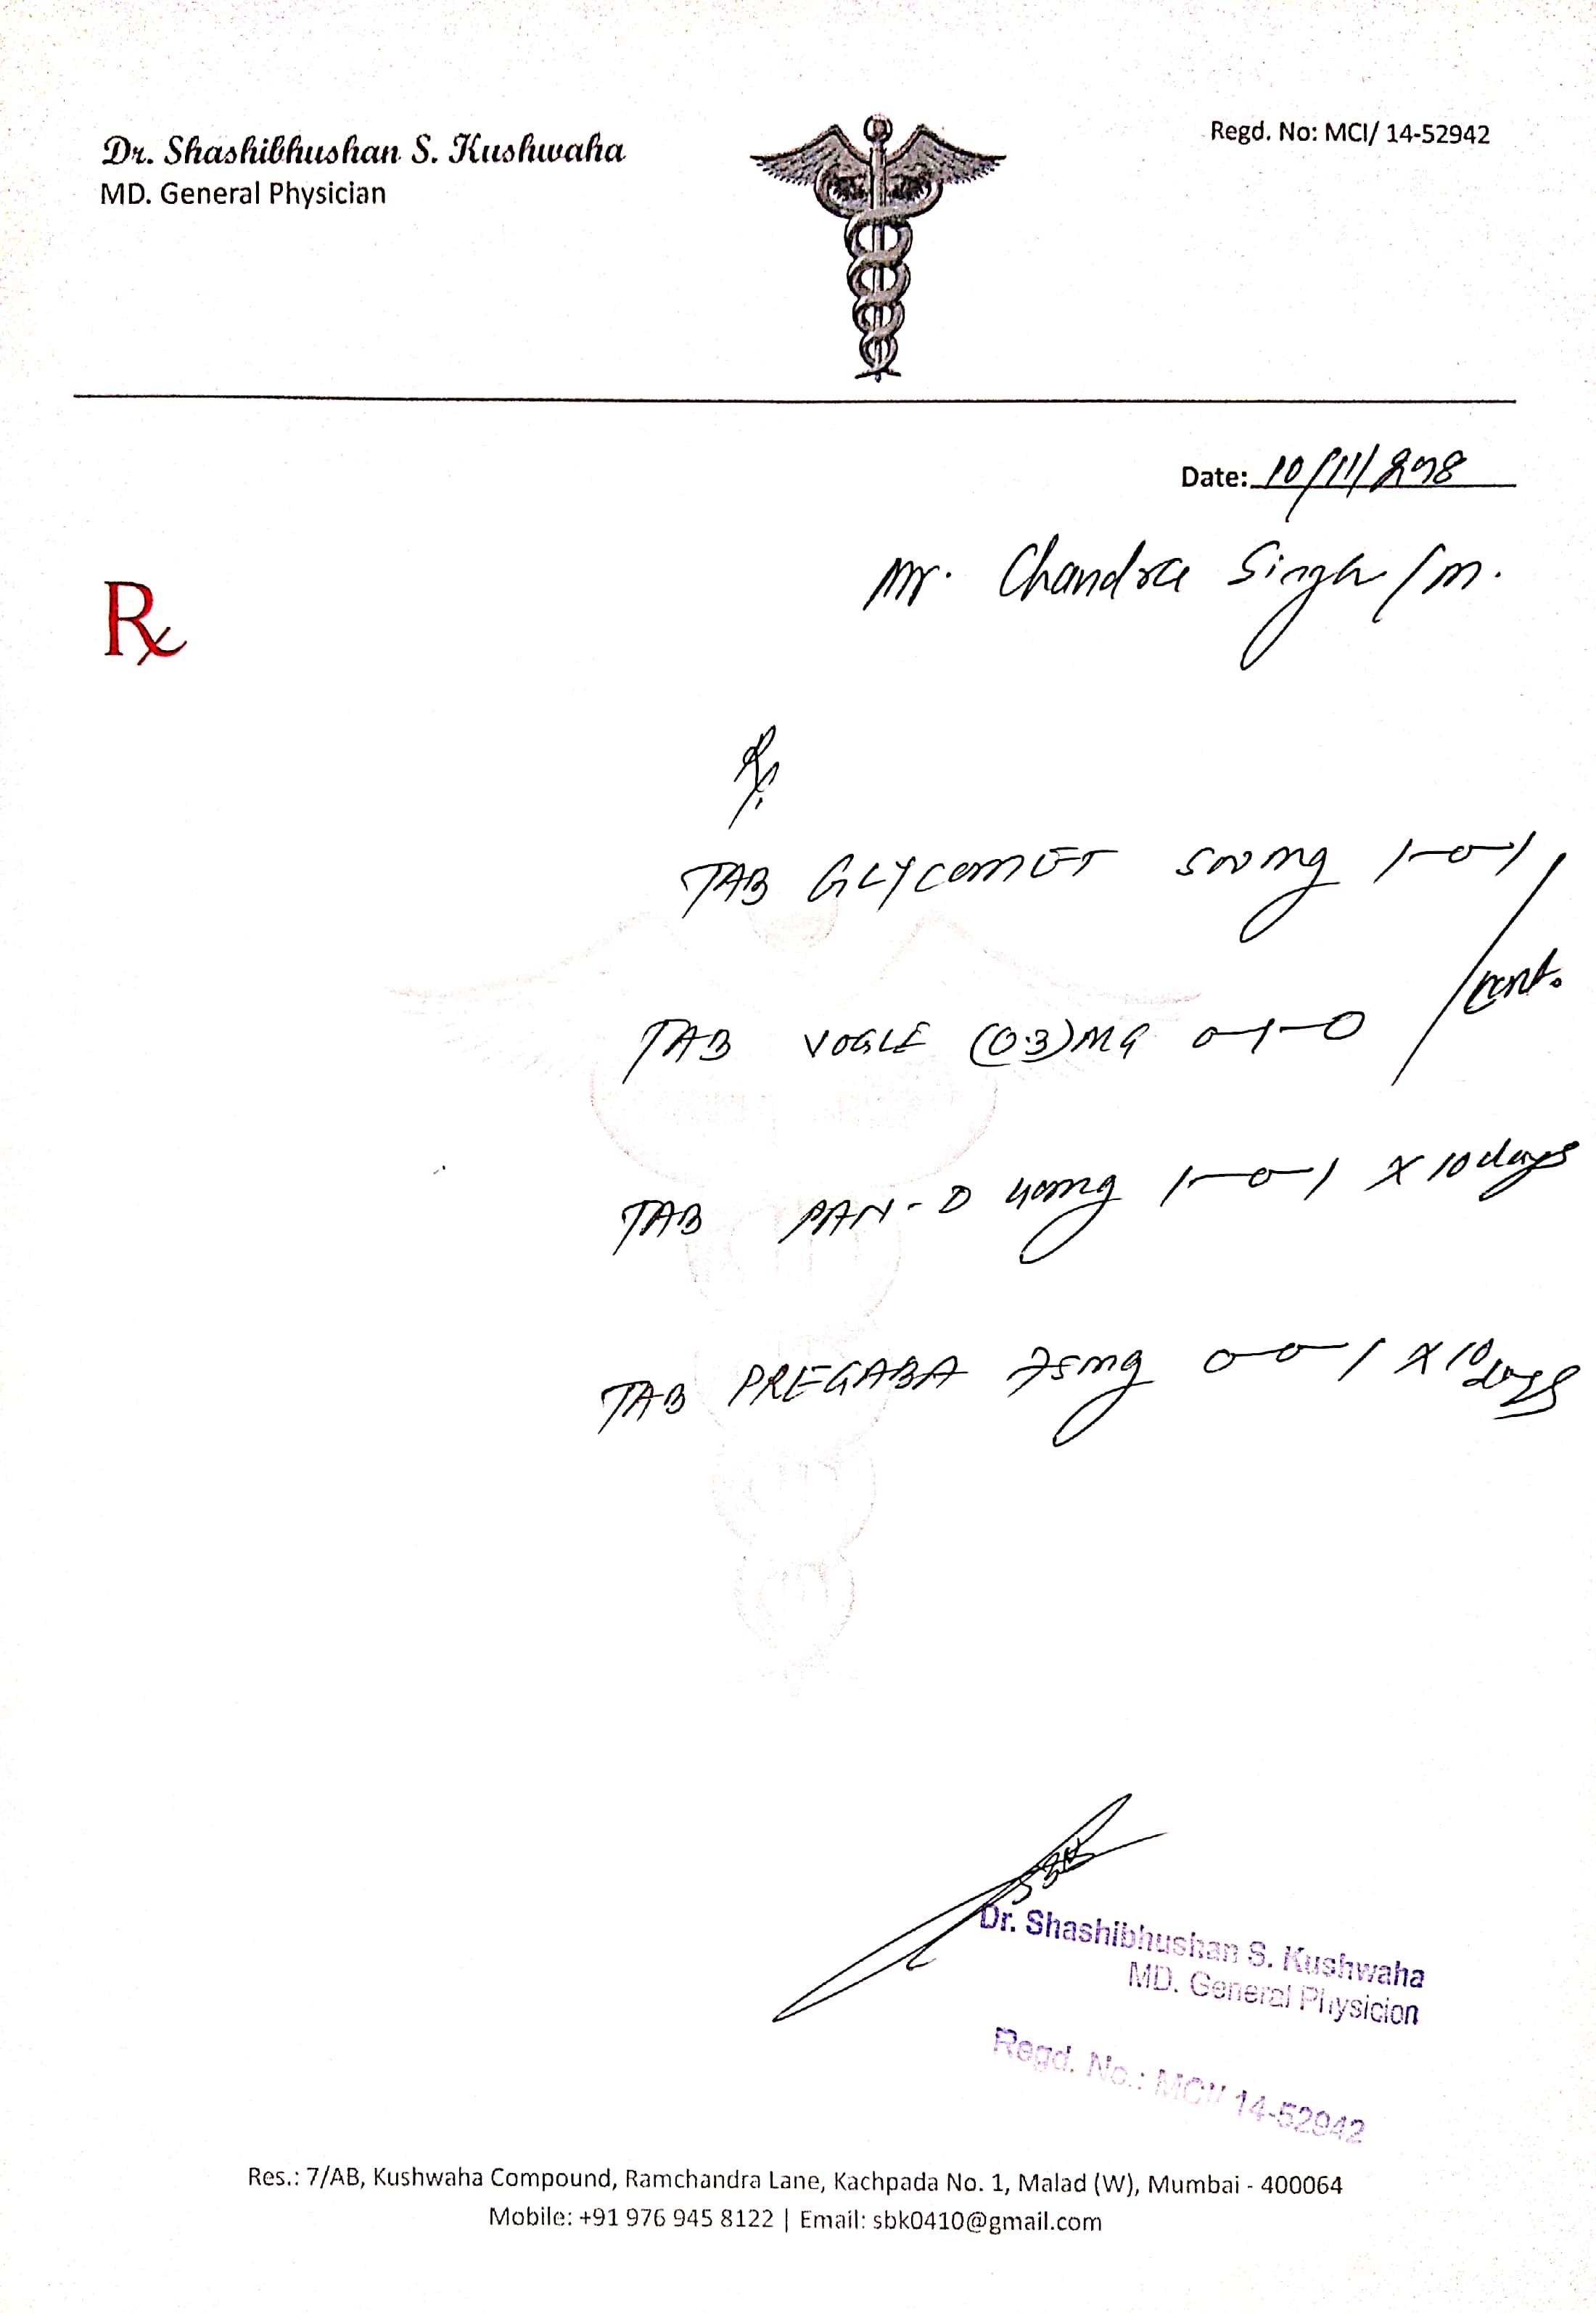 Dr. Shashibhushan S. Kushwaha
MD. General Physician
Regd. No: MCI/ 14-52942
Date: 10/11/2018
Mr. Chandra Singh / M.
Rx
Rx
TAB GLYCOMET 500mg 1-0-1
cont.
TAB VOGLE (0.3)MG 0-1-0
TAB PAN-D 40mg 1-0-1 x 10 days
TAB PREGABA 75mg 0-0-1 x 10 days
Dr. Shashibhushan S. Kushwaha
MD. General Physicion
Regd. No.: MCI/ 14-52942
Res.: 7/AB, Kushwaha Compound, Ramchandra Lane, Kachpada No. 1, Malad (W), Mumbai - 400064
Mobile: +91 976 945 8122 | Email: sbk0410@gmail.com